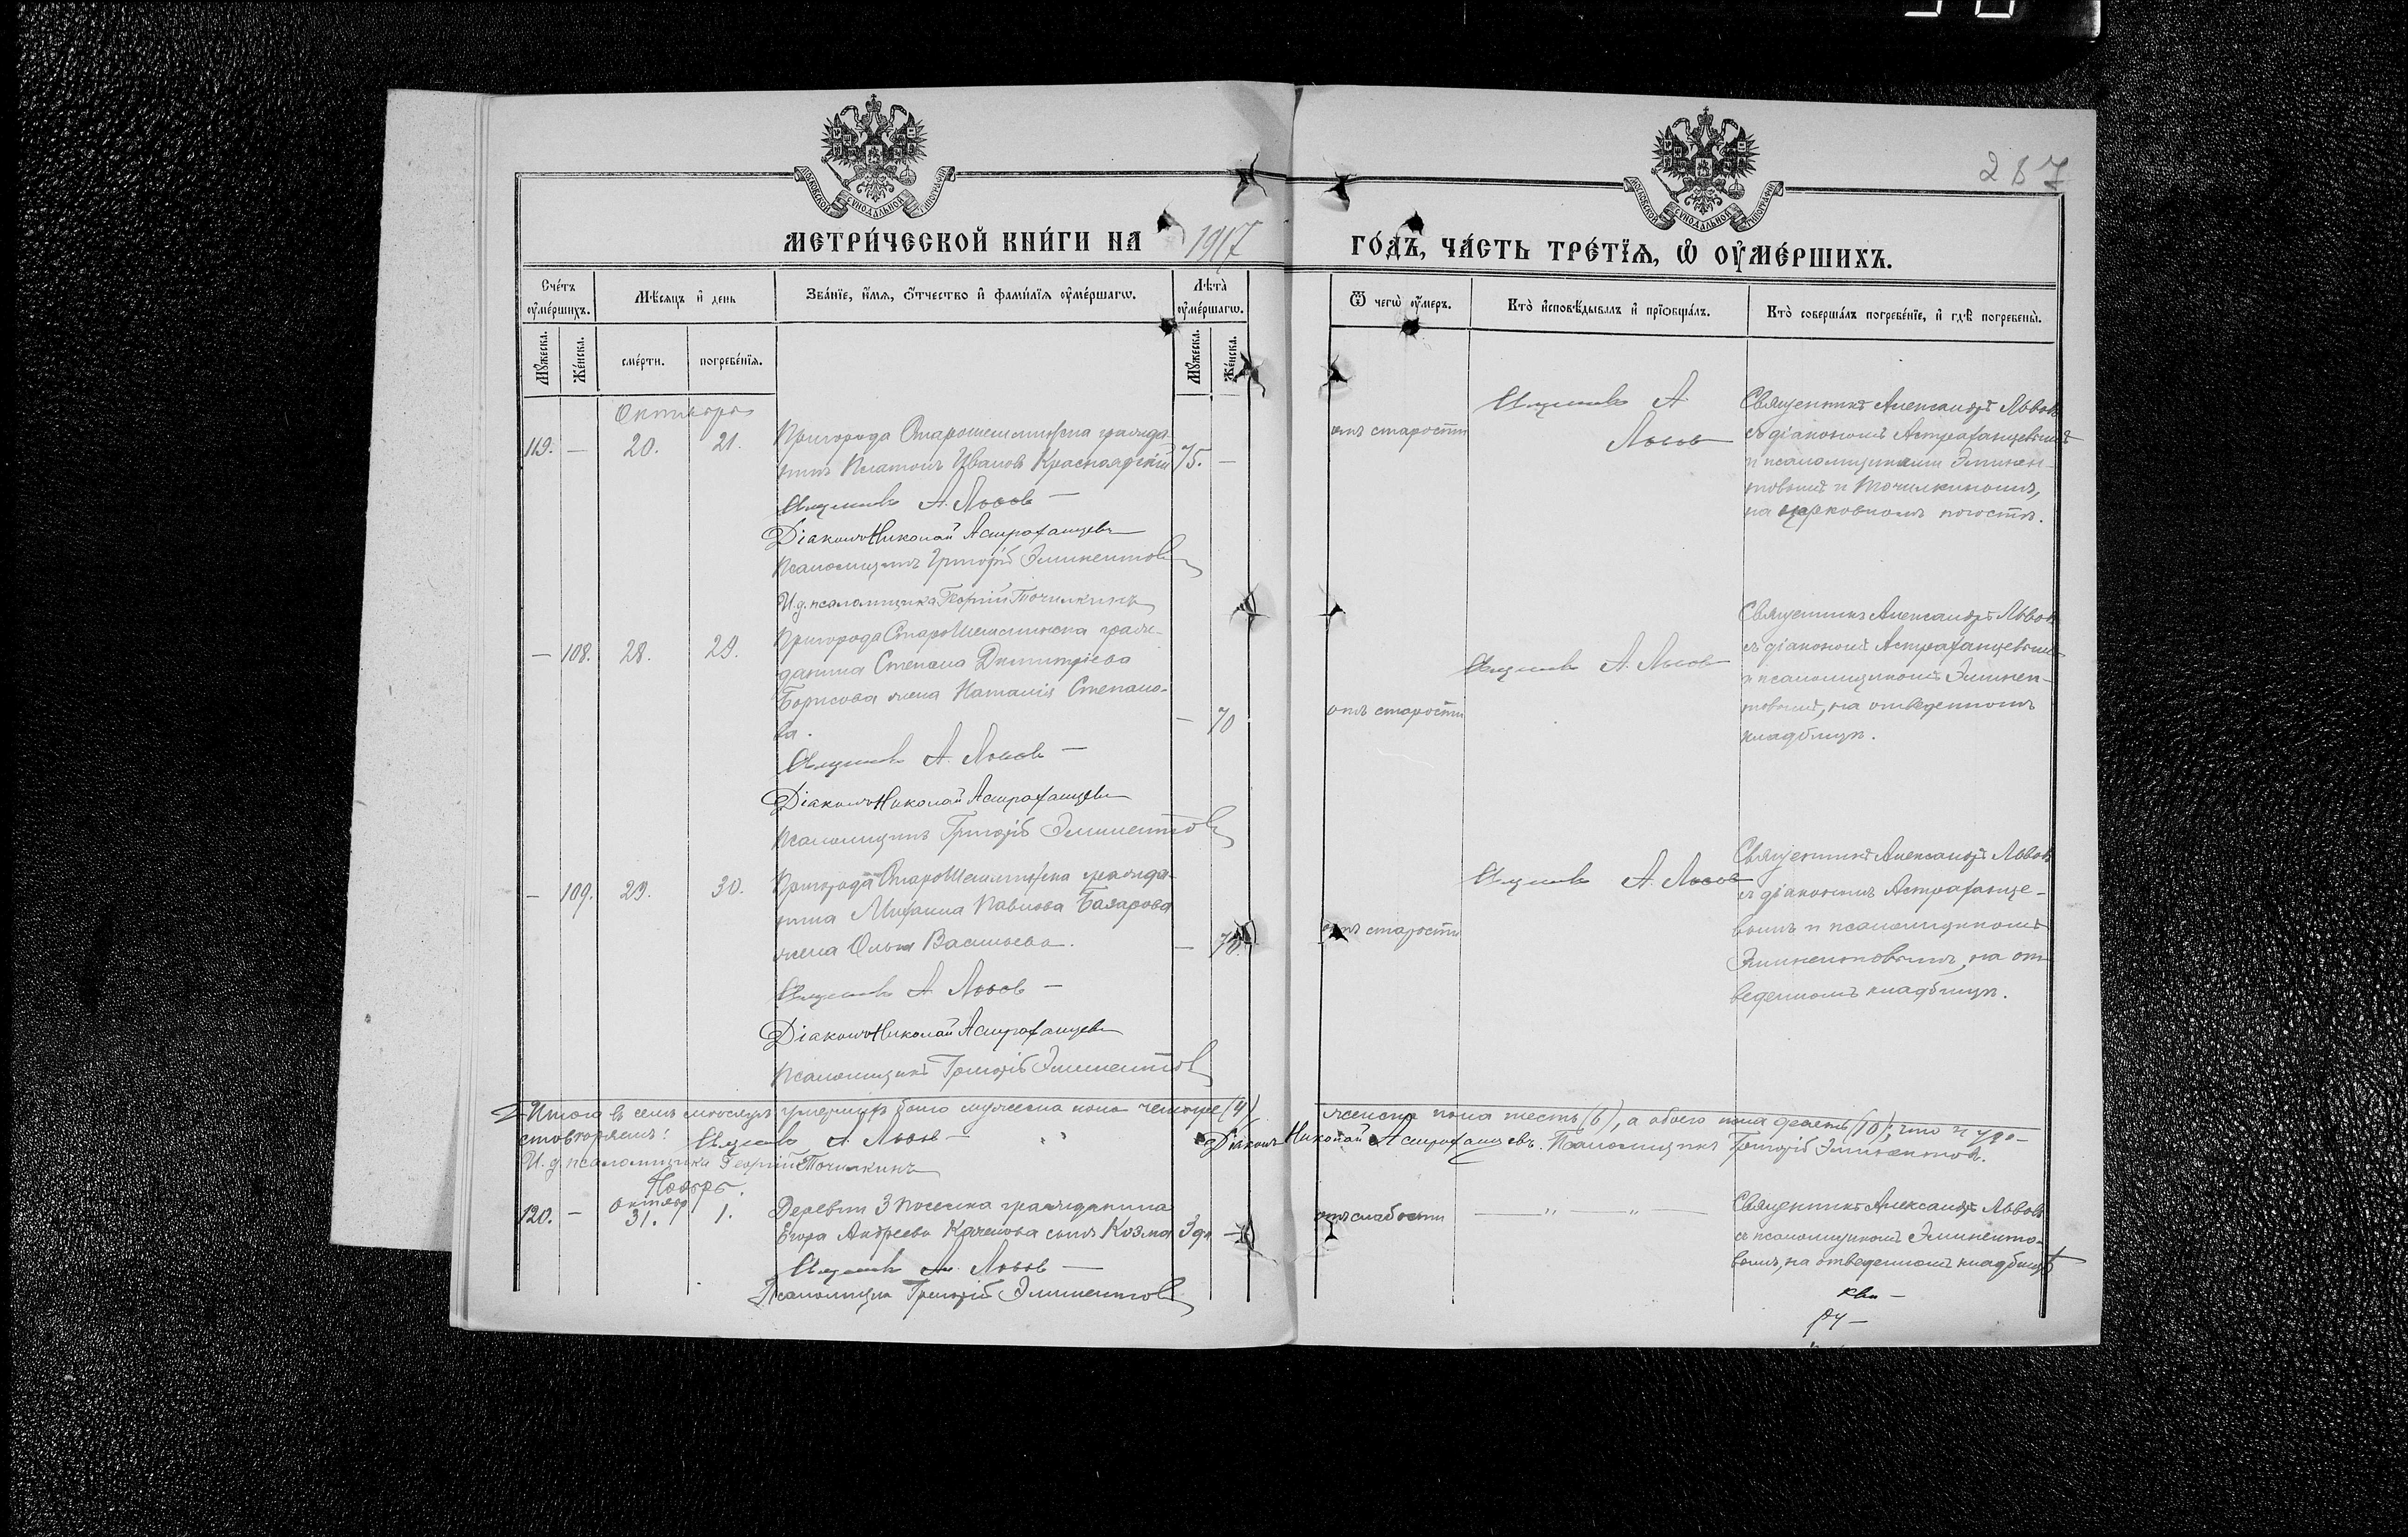 287
МОСКОВСКОЙ СУНОДАЛЬНОЙ ТИПОГРАФІИ
МОСКОВСКОЙ СУНОДАЛЬНОЙ ТИПОГРАФІИ
МЕТРИ́ЧЕСКОЙ КНИ́ГИ НА 1917 ГО́ДЪ, ЧА́СТЬ ТРЕ́ТЇѦ, Ѽ ОУ҆МЕ́РШИХЪ.
Сче́тъ оу҆ме́ршихъ.
Мѣ́сяцъ и҆ день
Зва́нїе, и҆́мѧ, ѻ҆́тчество и҆ фами́лїѧ оу҆ме́ршагѡ.
Лѣ́та оу҆ме́ршагѡ.
Ѿ чегѡ̀ оу҆́меръ.
Кто̀ и҆сповѣ́дывалъ и҆ прїѡбща́лъ.
Кто̀ соверша́лъ погребе́нїе, и҆ гдѣ̀ погребены̀.
Мꙋ́жеска.
Же́нска.
сме́рти.
погребе́нїѧ.
Мꙋ́жеска.
Же́нска.
Октябрь
119. — 20. 21.
Пригорода Старошешминска гражда-
нинъ Платонъ Ивановъ Красноярскій 75. —
Священникъ А. Львовъ —
Діаконъ Николай Астрафанцевъ
Псаломщикъ Григорій Эминентовъ
И. д. псаломщика Георгій Точилкинъ
отъ старости
Священникъ А.
Львовъ
Священникъ Александръ Львовъ
съ діакономъ Астрафанцевымъ
и псаломщиками Эминен-
товымъ и Точилкинымъ,
на церковномъ погостѣ.
— 108. 28. 29.
Пригорода СтароШешминска граж-
данина Степана Димитріева
Борисова жена Наталія Степано-
ва. — 70
Священникъ А. Львовъ —
Діаконъ Николай Астрафанцевъ
Псаломщикъ Григорій Эминентовъ
отъ старости
Священникъ А. Львовъ
Священникъ Александръ Львовъ
съ діакономъ Астрафанцевымъ
и псаломщикомъ Эминен-
товымъ, на отведенномъ
кладбищѣ.
— 109. 29. 30.
Пригорода СтароШешминска гражда-
нина Михаила Павлова Базарова
жена Ольга Васильева. — 70.
Священникъ А. Львовъ —
Діаконъ Николай Астрафанцевъ
Псаломщикъ Григорій Эминентовъ
отъ старости
Священникъ А. Львовъ
Священникъ Александръ Львовъ
съ діакономъ Астрафанце-
вымъ и псаломщикомъ
Эминентовымъ, на от-
веденномъ кладбищѣ.
Итого въ семъ мѣсяцѣ умершихъ было мужеска пола четыре (4) женска пола шесть (6), а обоего пола десять (10); что и удо-
стовѣряемъ: Священникъ А. Львовъ — Діаконъ Николай Астрафанцевъ. Псаломщикъ Григорій Эминентовъ.
И. д. псаломщика Георгій Точилкинъ
Ноябрь.
октябр
120. — 31. 1.
Деревни 3 поселка гражданина
Егора Андреева Каченова сынъ Козма 3 дн. —
Священникъ А. Львовъ —
Псаломщикъ Григорій Эминентовъ
отъ слабости
— „ — „ —
Священникъ Александръ Львовъ
съ псаломщикомъ Эминенто-
вымъ, на отведенномъ кладбищѣ